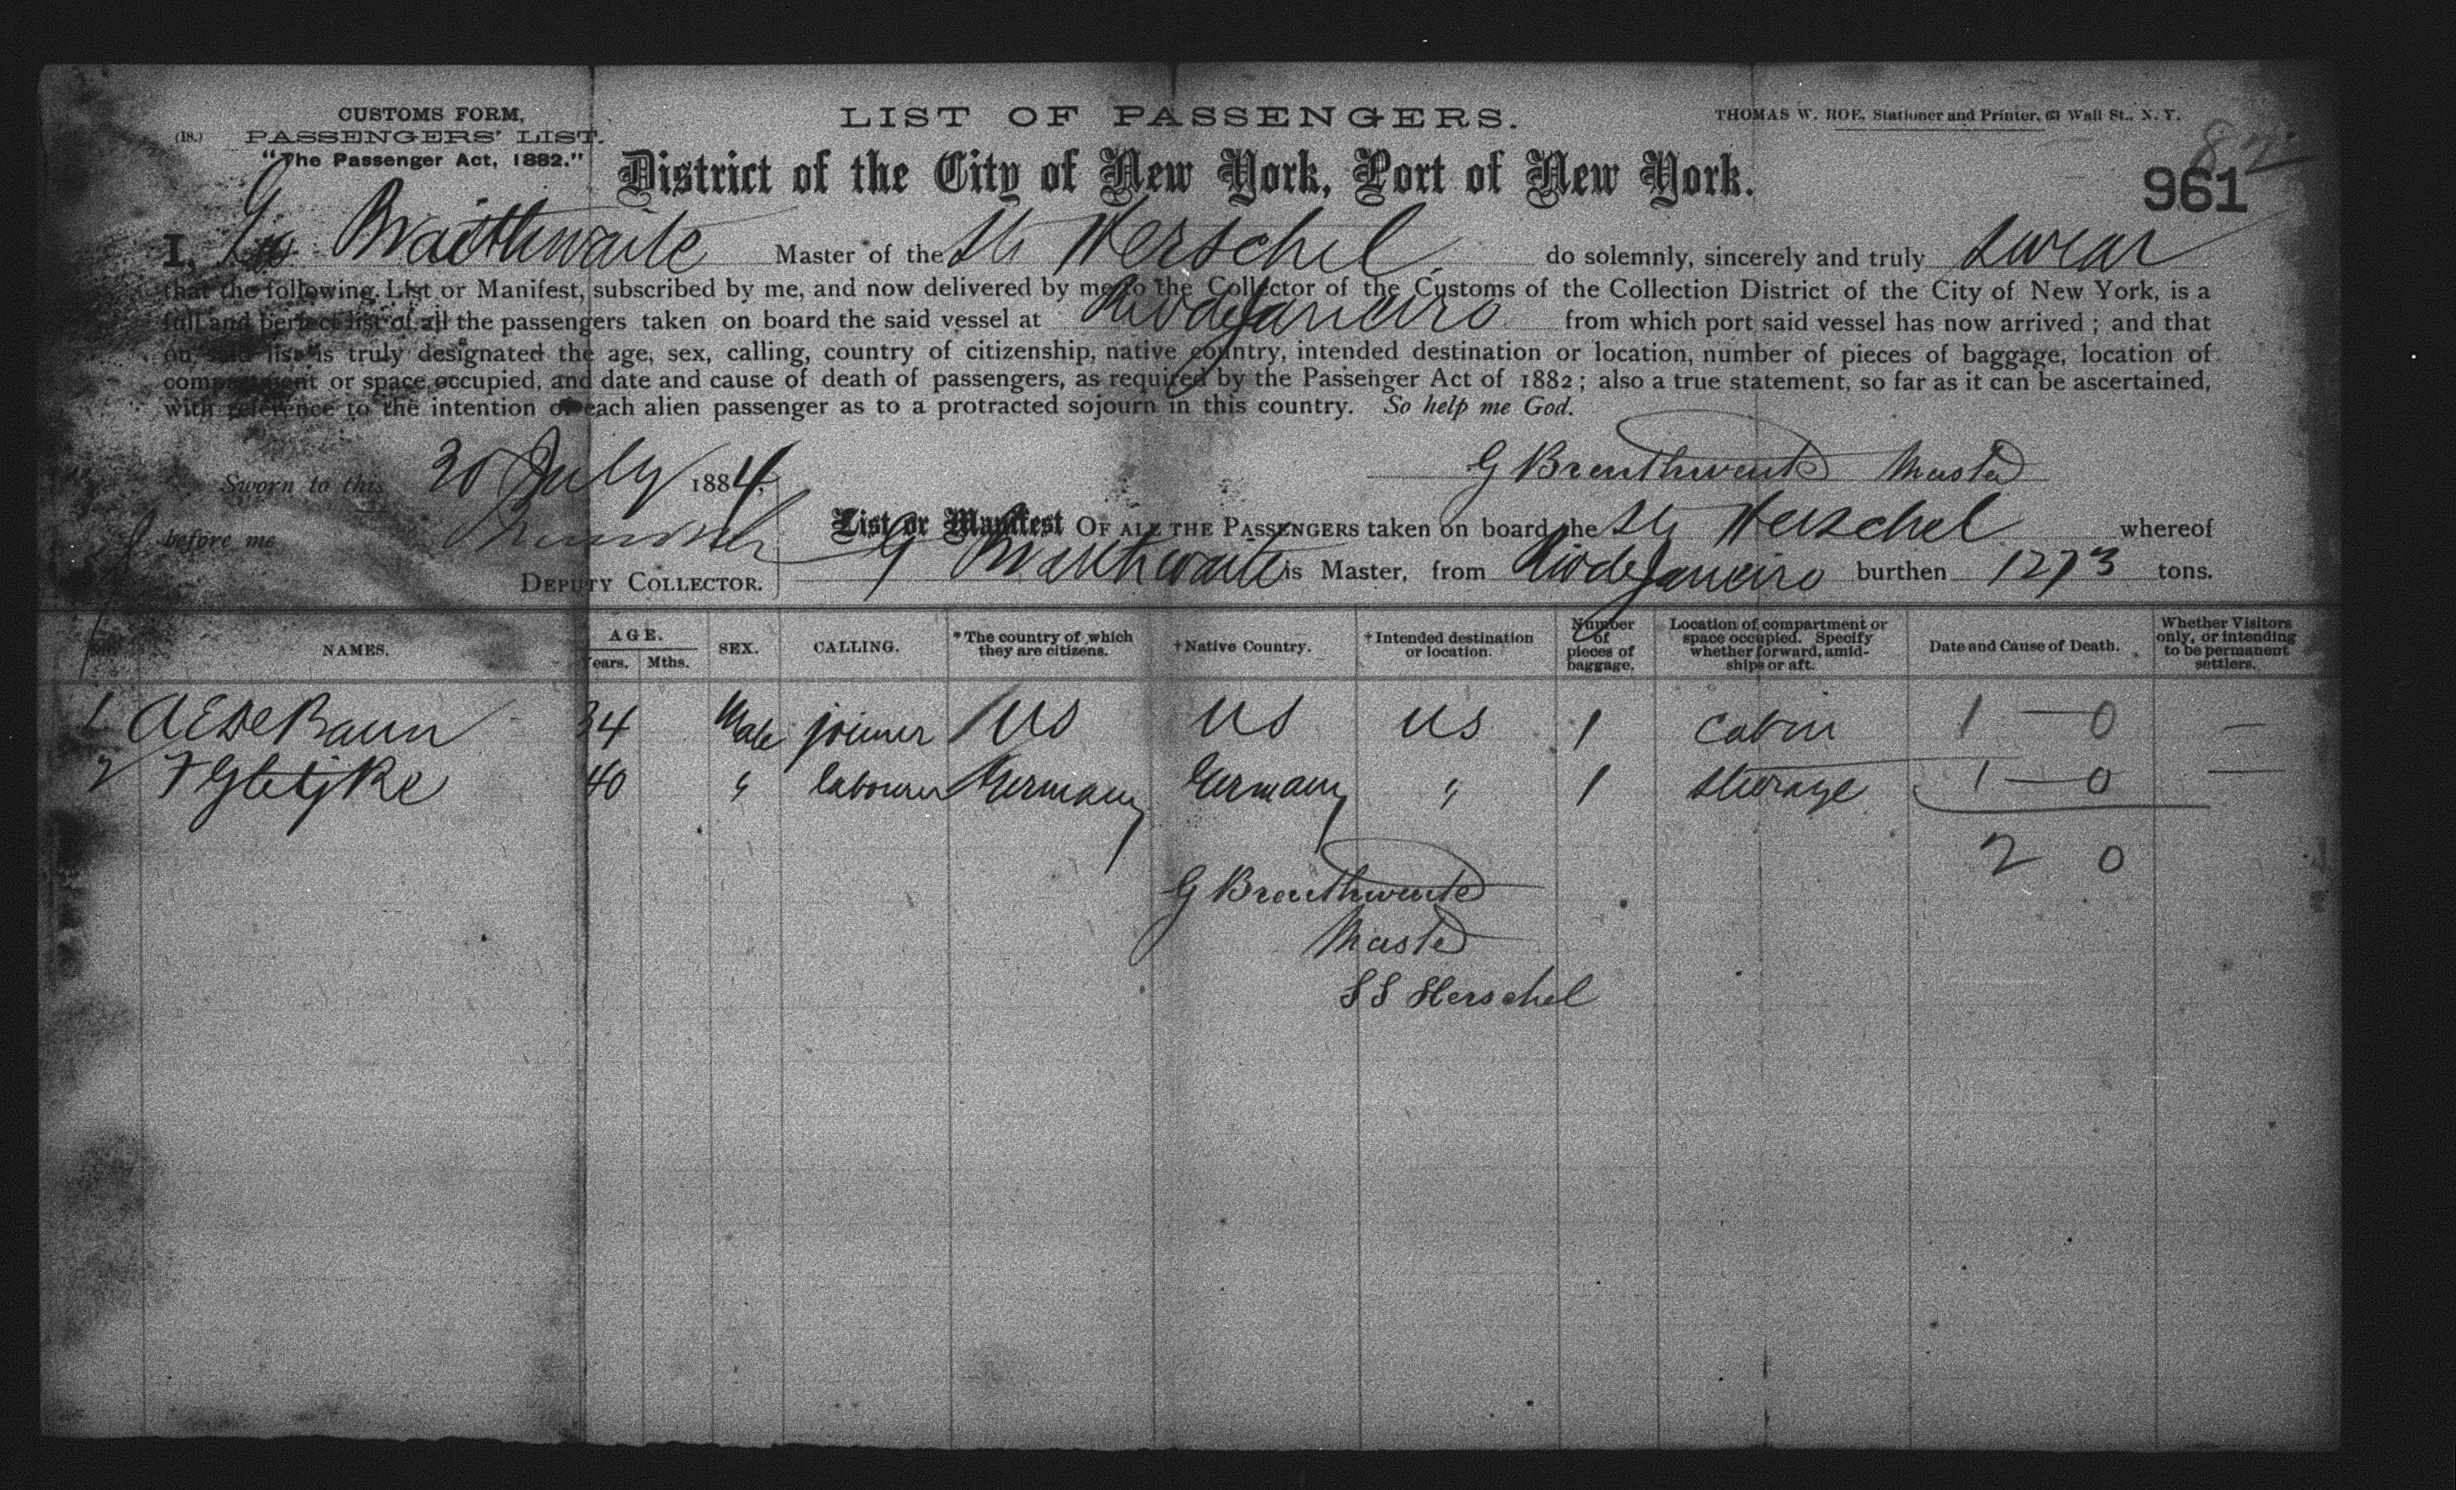 CUSTOMS FORM,
(18.) PASSENGERS' LIST.
"The Passenger Act, 1882."
LIST OF PASSENGERS.
THOMAS W. ROE, Stationer and Printer, 63 Wall St., N. Y.
District of the City of New York, Port of New York.
82
961
I, Braithwaite Master of the Str Herschel do solemnly, sincerely and truly swear
that the following List or Manifest, subscribed by me, and now delivered by me to the Collector of the Customs of the Collection District of the City of New York, is a
full and perfect list of all the passengers taken on board the said vessel at Rio de Janeiro from which port said vessel has now arrived; and that
on said list is truly designated the age, sex, calling, country of citizenship, native country, intended destination or location, number of pieces of baggage, location of
compartment or space occupied, and date and cause of death of passengers, as required by the Passenger Act of 1882; also a true statement, so far as it can be ascertained,
with reference to the intention of each alien passenger as to a protracted sojourn in this country. So help me God.
Sworn to this 30 July 1884,
G Braithwaite Master
before me
DEPUTY COLLECTOR.
List or Manifest OF ALL THE PASSENGERS taken on board the Str Herschel whereof
G Braithwaite is Master, from Rio de Janeiro burthen 1273 tons.
NAMES. AGE. Years. Mths. SEX. CALLING. *The country of which they are citizens. †Native Country. †Intended destination or location. Number of pieces of baggage. Location of compartment or space occupied. Specify whether forward, amidships or aft. Date and Cause of Death. Whether Visitors only, or intending to be permanent settlers.
1 A E DeBaun 34 Male joiner US US US 1 Cabin 1 — 0 —
2 F 40 " labourer Germany Germany " 1 Steerage 1 — 0 —
2 0
G Braithwaite
Master
SS Herschel